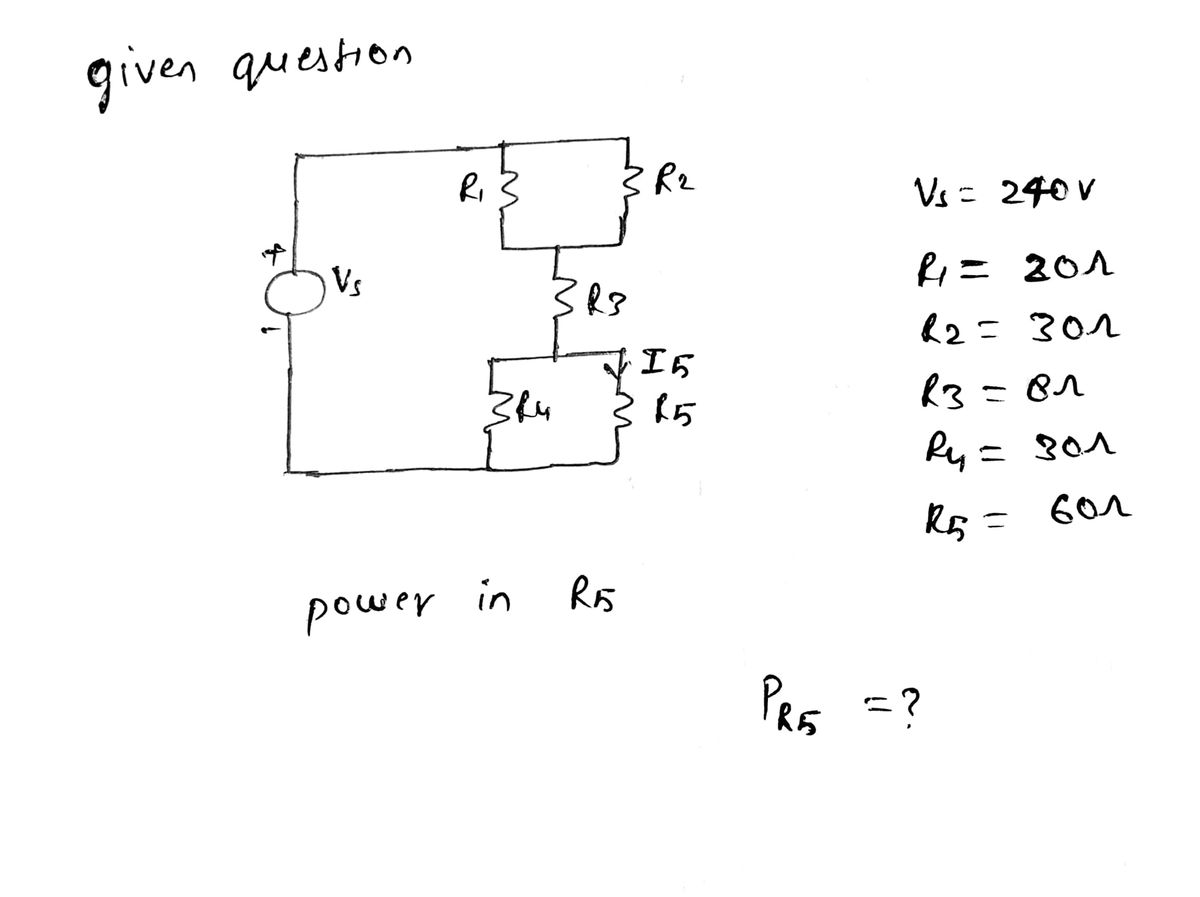 given question
R1
R2
+
Vs
-
R3
I5
R4
R5
Vs = 240V
R1 = 20Ω
R2 = 30Ω
R3 = 8Ω
R4 = 30Ω
R5 = 60Ω
power in R5
PR5 = ?